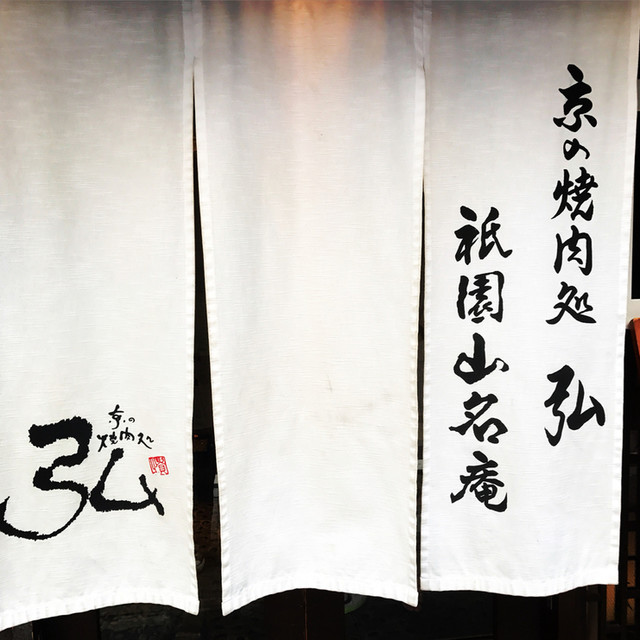 京の焼肉処 弘
祇園山名庵
京の
焼肉処
弘